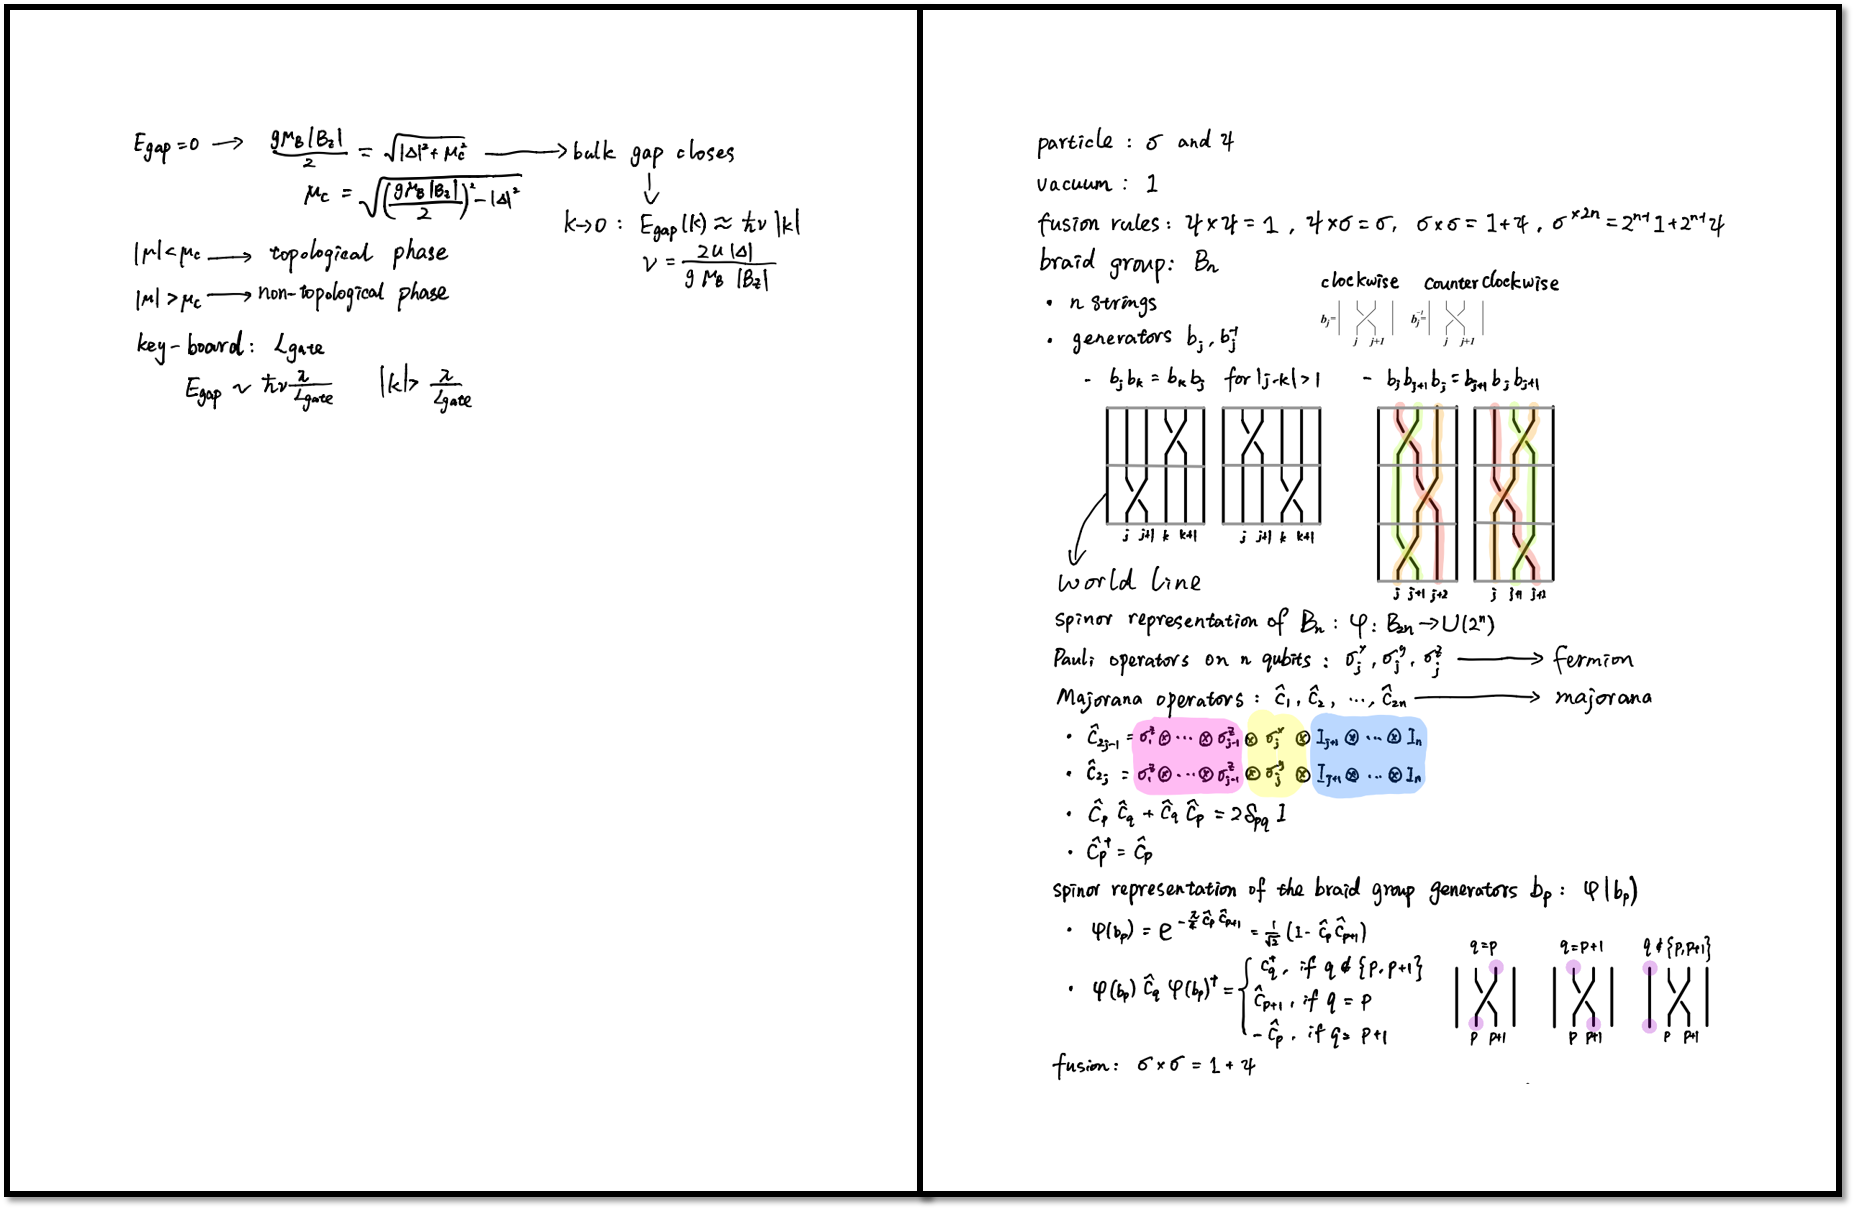 E_gap = 0 → gμ_B|B_z|/2 = √(|Δ|² + μ_c²) → bulk gap closes
μ_c = √((gμ_B|B_z|/2)² - |Δ|²)
k→0 : E_gap(k) ≈ ħν|k|
ν = 2u|Δ| / gμ_B|B_z|
|μ| < μ_c → topological phase
|μ| > μ_c → non-topological phase
key-board: L_gate
E_gap ~ ħν π/L_gate |k| > π/L_gate
particle : σ and ψ
vacuum : 1
fusion rules: ψ×ψ = 1 , ψ×σ = σ, σ×σ = 1+ψ , σ^{×2n} = 2^{n-1}1+2^{n-1}ψ
braid group: B_n
clockwise counterclockwise
• n strings
b_j= j j+1 b_j^{-1}= j j+1
• generators b_j, b_j^{-1}
- b_j b_k = b_k b_j for |j-k| > 1 - b_j b_{j+1} b_j = b_{j+1} b_j b_{j+1}
j j+1 k k+1 j j+1 k k+1
j j+1 j+2 j j+1 j+2
world line
spinor representation of B_n : φ : B_2n → U(2^n)
Pauli operators on n qubits : σ_j^x, σ_j^y, σ_j^z → fermion
Majorana operators : ĉ_1, ĉ_2, ..., ĉ_2n → majorana
• ĉ_{2j-1} = σ_1^z ⊗ ... ⊗ σ_{j-1}^z ⊗ σ_j^x ⊗ I_{j+1} ⊗ ... ⊗ I_n
• ĉ_{2j} = σ_1^z ⊗ ... ⊗ σ_{j-1}^z ⊗ σ_j^y ⊗ I_{j+1} ⊗ ... ⊗ I_n
• ĉ_p ĉ_q + ĉ_q ĉ_p = 2δ_pq I
• ĉ_p^† = ĉ_p
spinor representation of the braid group generators b_p : φ(b_p)
• φ(b_p) = e^{-π/4 ĉ_p ĉ_{p+1}} = 1/√2 (1 - ĉ_p ĉ_{p+1})
q=p q=p+1 q∉{p,p+1}
• φ(b_p) ĉ_q φ(b_p)^† = { c_q^†, if q ∉ {p, p+1}
ĉ_{p+1}, if q = p
-ĉ_p, if q = p+1
p p+1 p p+1 p p+1
fusion: σ×σ = 1+ψ